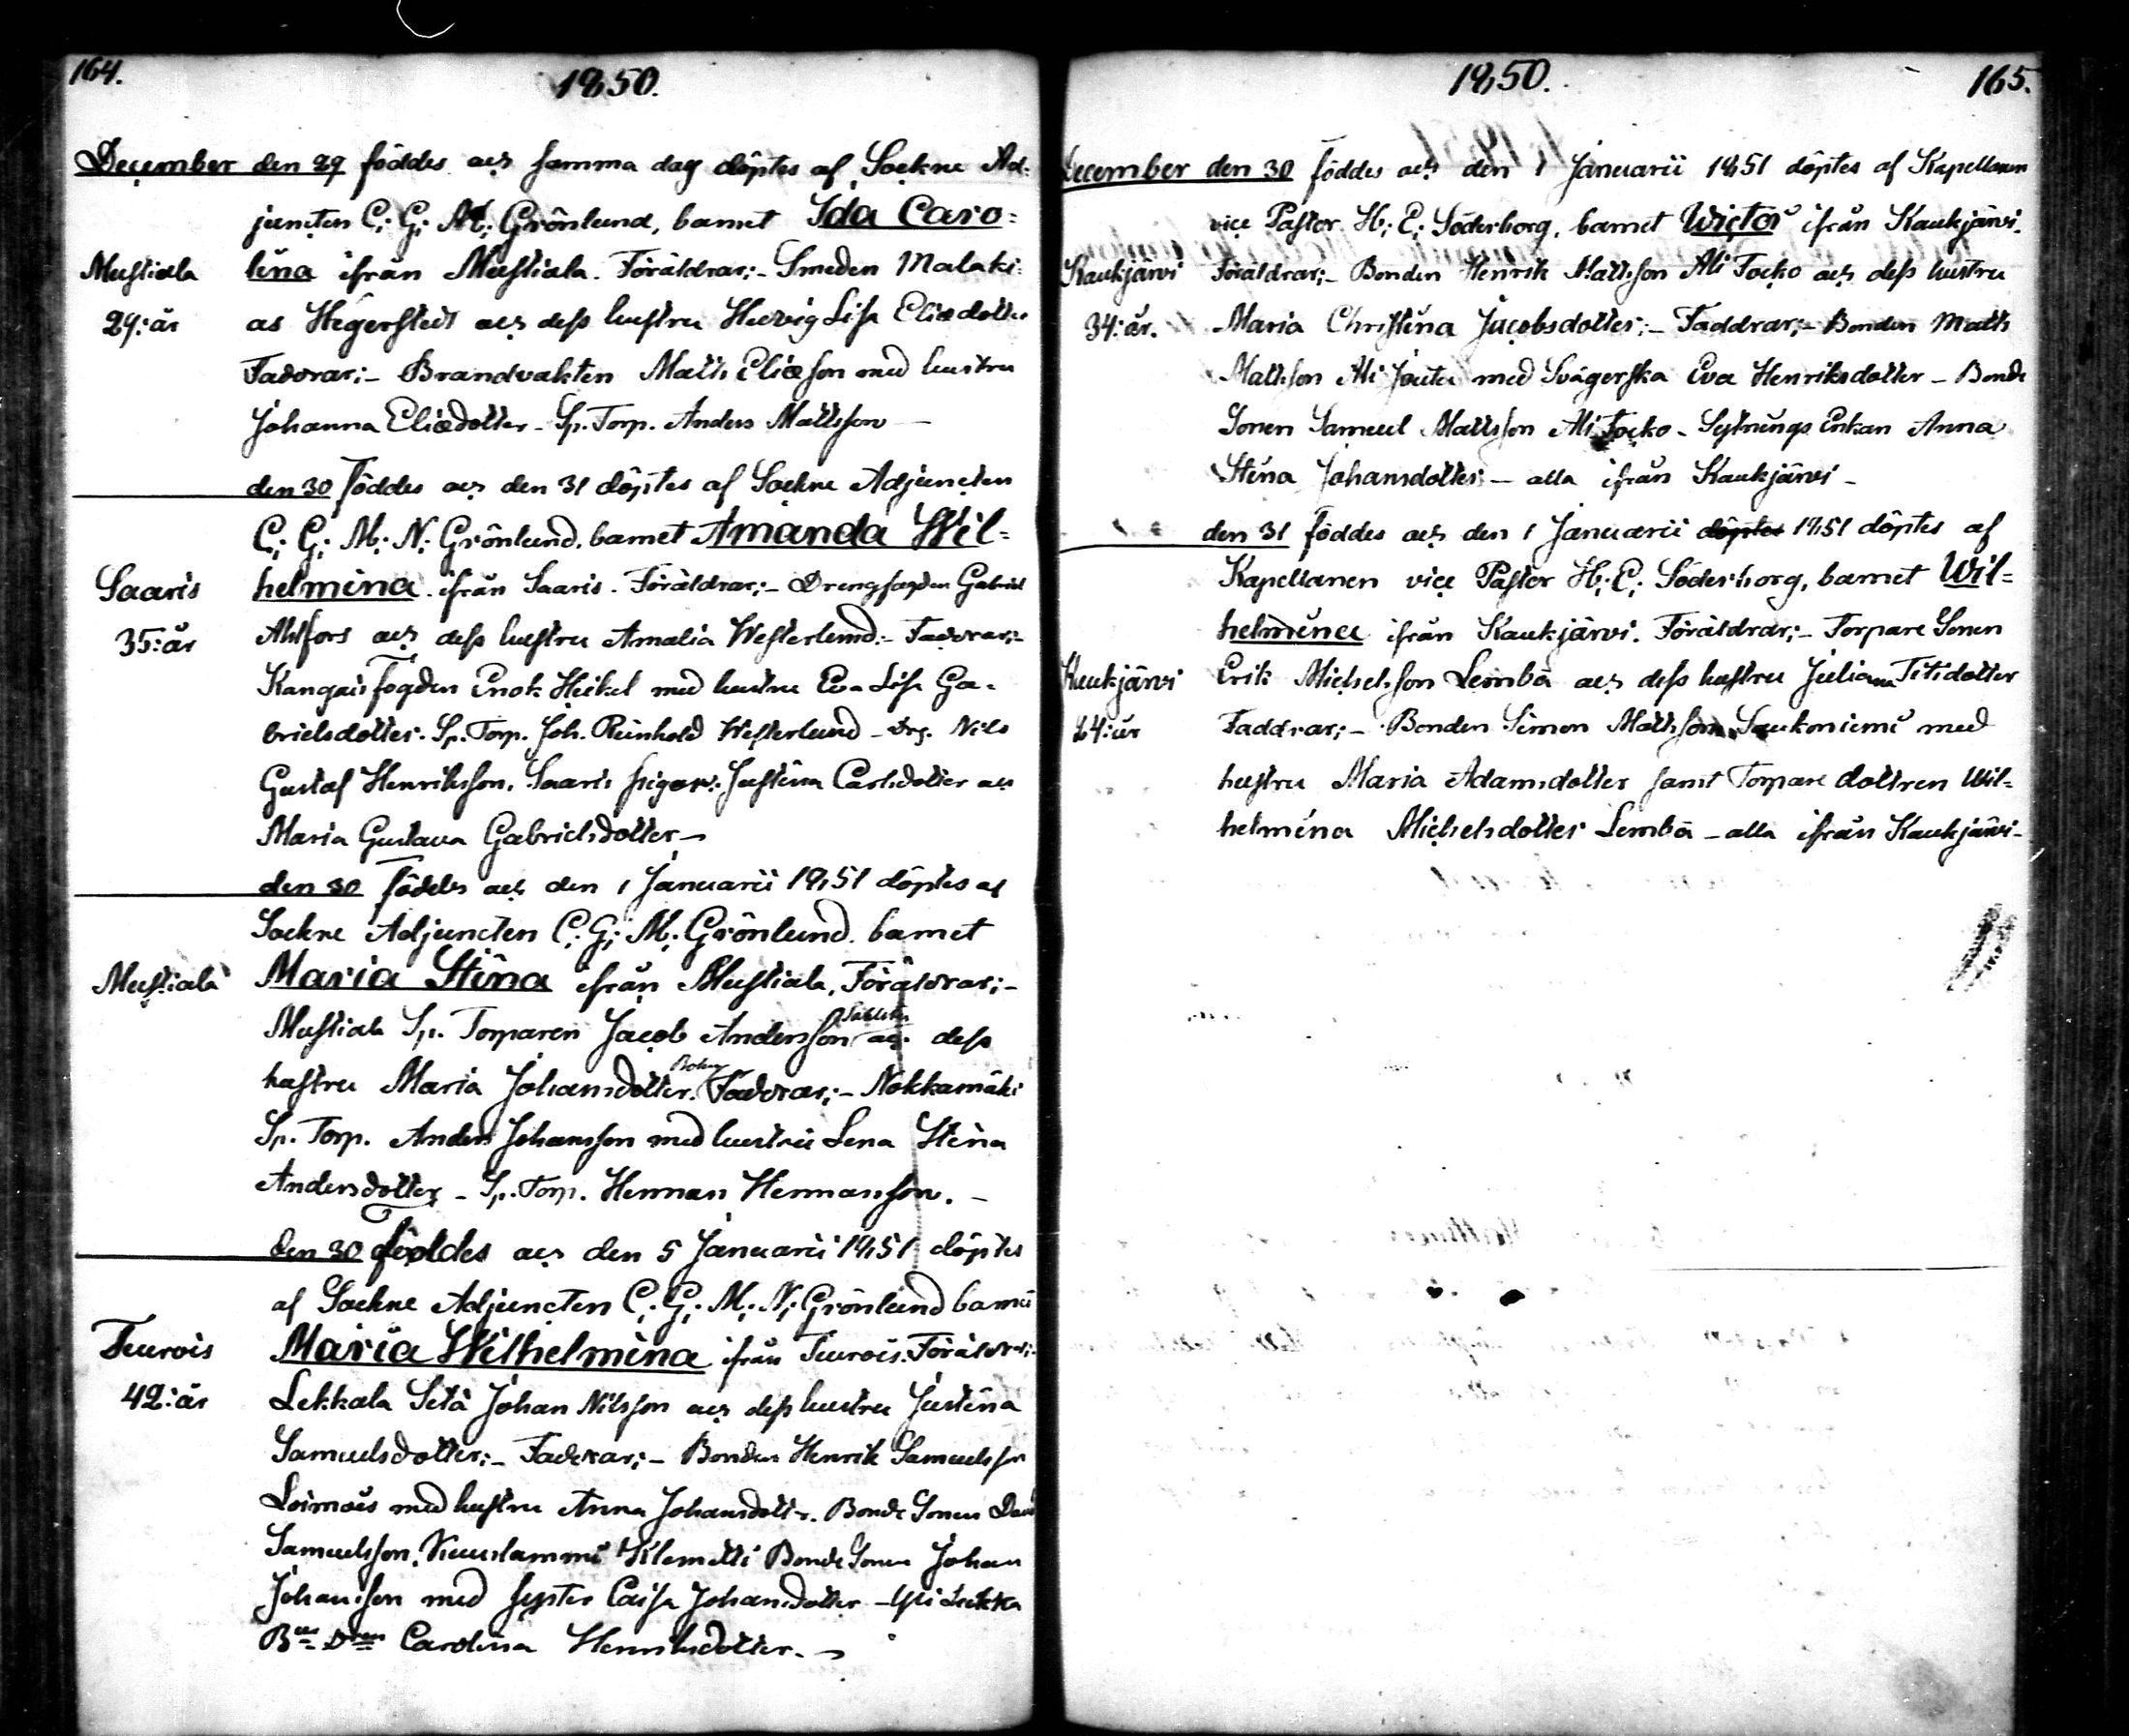 164.
1850.
December den 29 föddes och samma dag döptes af Sockne Ad-
juncten C. G. M. Grönlund, barnet Ida Caro-
Mustiala
lina ifrån Mustiala. Föräldrar;- Smeden Malaki-
29: år
as Hegerstedt och dess hustru Hedvig Lisa Eliædotter
Faddrar;- Brandvakten Matts Eliæson med hustru
Johanna Eliædotter - Sp. Torp. Anders Mattsson -
den 30 föddes och den 31 döptes af Sockne Adjuncten
C. G. M. N. Grönlund, barnet Amanda Wil-
Saaris
helmina ifrån Saaris. Föräldrar;- Drengfogden Gabriel
35: år
Ahlfors och dess hustru Amalia Westerlund;- Faddrar;-
Kangais fogden Enok Heikel med hustru Eva Lisa Ga-
brielsdotter. Sp. Torp. Joh. Reinhold Westerlund - Drg. Nils
Gustaf Henriksson, Saaris pigor: Justina Carlsdotter och
Maria Gustava Gabrielsdotter -
den 30 föddes och den 1 Januarii 1851 döptes af
Sockne Adjuncten C. G. M. Grönlund. barnet
Mustiala
Maria Stina ifrån Mustiala, Föräldrar;-
Mustiala Sp. Torparen Jacob Andersson och dess
hustru Maria Johansdotter. Faddrar;- Nokkamäki
Sp. Torp. Anders Johansson med hustru Lena Stina
Andersdotter - Sp. Torp. Herman Hermansson. -
den 30 föddes och den 5 Januarii 1851 döptes
af Sockne Adjuncten C. G. M. N. Grönlund barnet
Teurois
Maria Wilhelmina ifrån Teurois. Föräldrar;-
42: år
Lekkala Sytn Johan Nilsson och dess hustru Justina
Samuelsdotter;- Faddrar;- Bonden Henrik Samuelsson
Loimois med hustru Anna Johansdotter. Bonde Sonen David
Samuelsson, Kuuslammi Klemetti Bonde Sonen Johan
Johansson med syster Caisa Johansdotter - Yli Lukka
B<sup>de</sup> D<sup>tren</sup> Carolina Henriksdotter. -
1850.
165.
December den 30 föddes och den 1 Januarii 1851 döptes af Kapellanen
vice Pastor H. E. Söderborg, barnet Wictor ifrån Kaukjärvi.
Kaukjärvi
Föräldrar;- Bonden Henrik Mattsson Ali Tocko och dess hustru
34: år.
Maria Christina Jacobsdotter;- Faddrar;- Bonden Matts
Mattsson Ali Jouta med Svägerska Eva Henriksdotter - Bonde
Sonen Samuel Mattsson Ali Tocko - Sytnings Enkan Anna
Stina Johansdotter - alla ifrån Kaukjärvi -
den 31 föddes och den 1 Januarii döptes 1851 döptes af
Kapellanen vice Pastor H. E. Söderborg, barnet Wil-
helmina ifrån Kaukjärvi. Föräldrar;- Torpare Sonen
Kaukjärvi
Erik Michelsson Lembä och dess hustru Juliana Titidotter
24: år
Faddrar;- Bonden Simon Mattsson Saukoniemi med
hustru Maria Adamsdotter samt Torpare dottren Wil-
helmina Michelsdotter Lembä - alla ifrån Kaukjärvi -